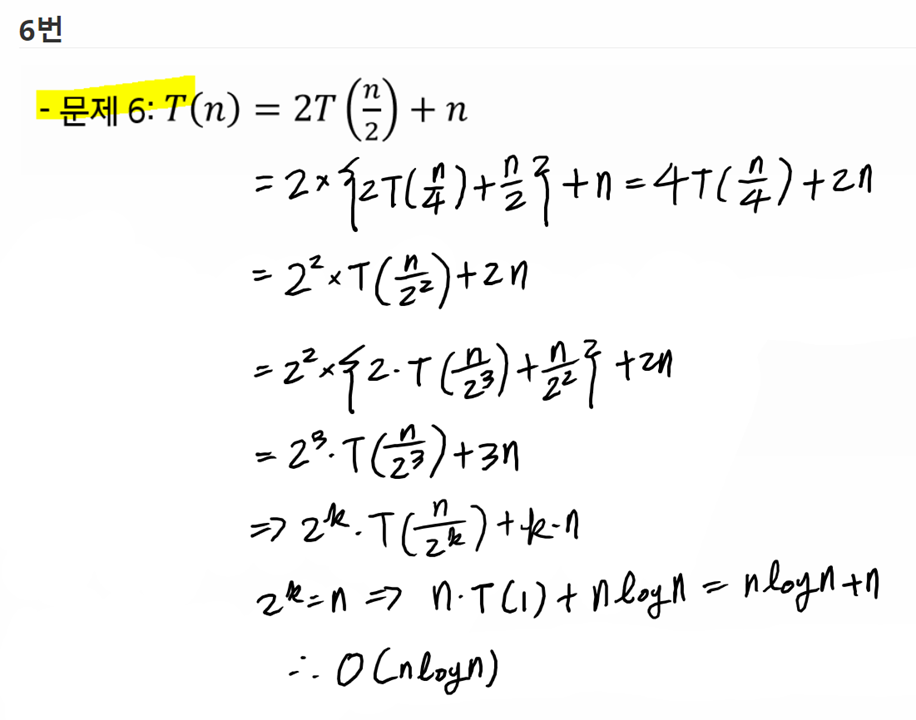 6번
- 문제 6: T(n) = 2T(n/2) + n
= 2 × {2T(n/4) + n/2} + n = 4T(n/4) + 2n
= 2² × T(n/2²) + 2n
= 2² × {2 · T(n/2³) + n/2²} + 2n
= 2³ · T(n/2³) + 3n
⇒ 2ᵏ · T(n/2ᵏ) + k · n
2ᵏ = n ⇒ n · T(1) + n log n = n log n + n
∴ O(n log n)